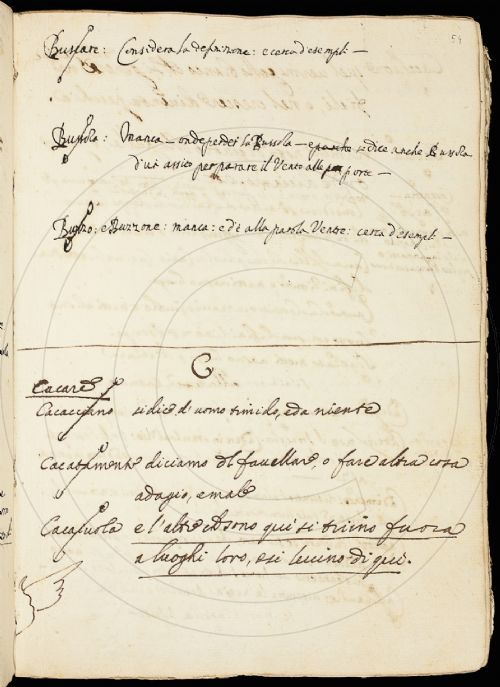 54
Buscare: Considera la definizione: e cerca d'esempli —
Bussola: Manca — onde perder la Bussola — e si dice anche Bussola
d'un assito per parare il Vento alle porte —
Buzzo, e Buzzone: manca: e dì alla parola Ventre: cerca d'esempli —
C
Cacare
Cacacciano si dice d'uomo timido, e da niente
Cacatamente diciamo del favellare, o fare altra cosa
adagio, e male
Cacaiuola e l'altre che sono qui si tirino fuora
a luoghi loro, e si lievino di qui.